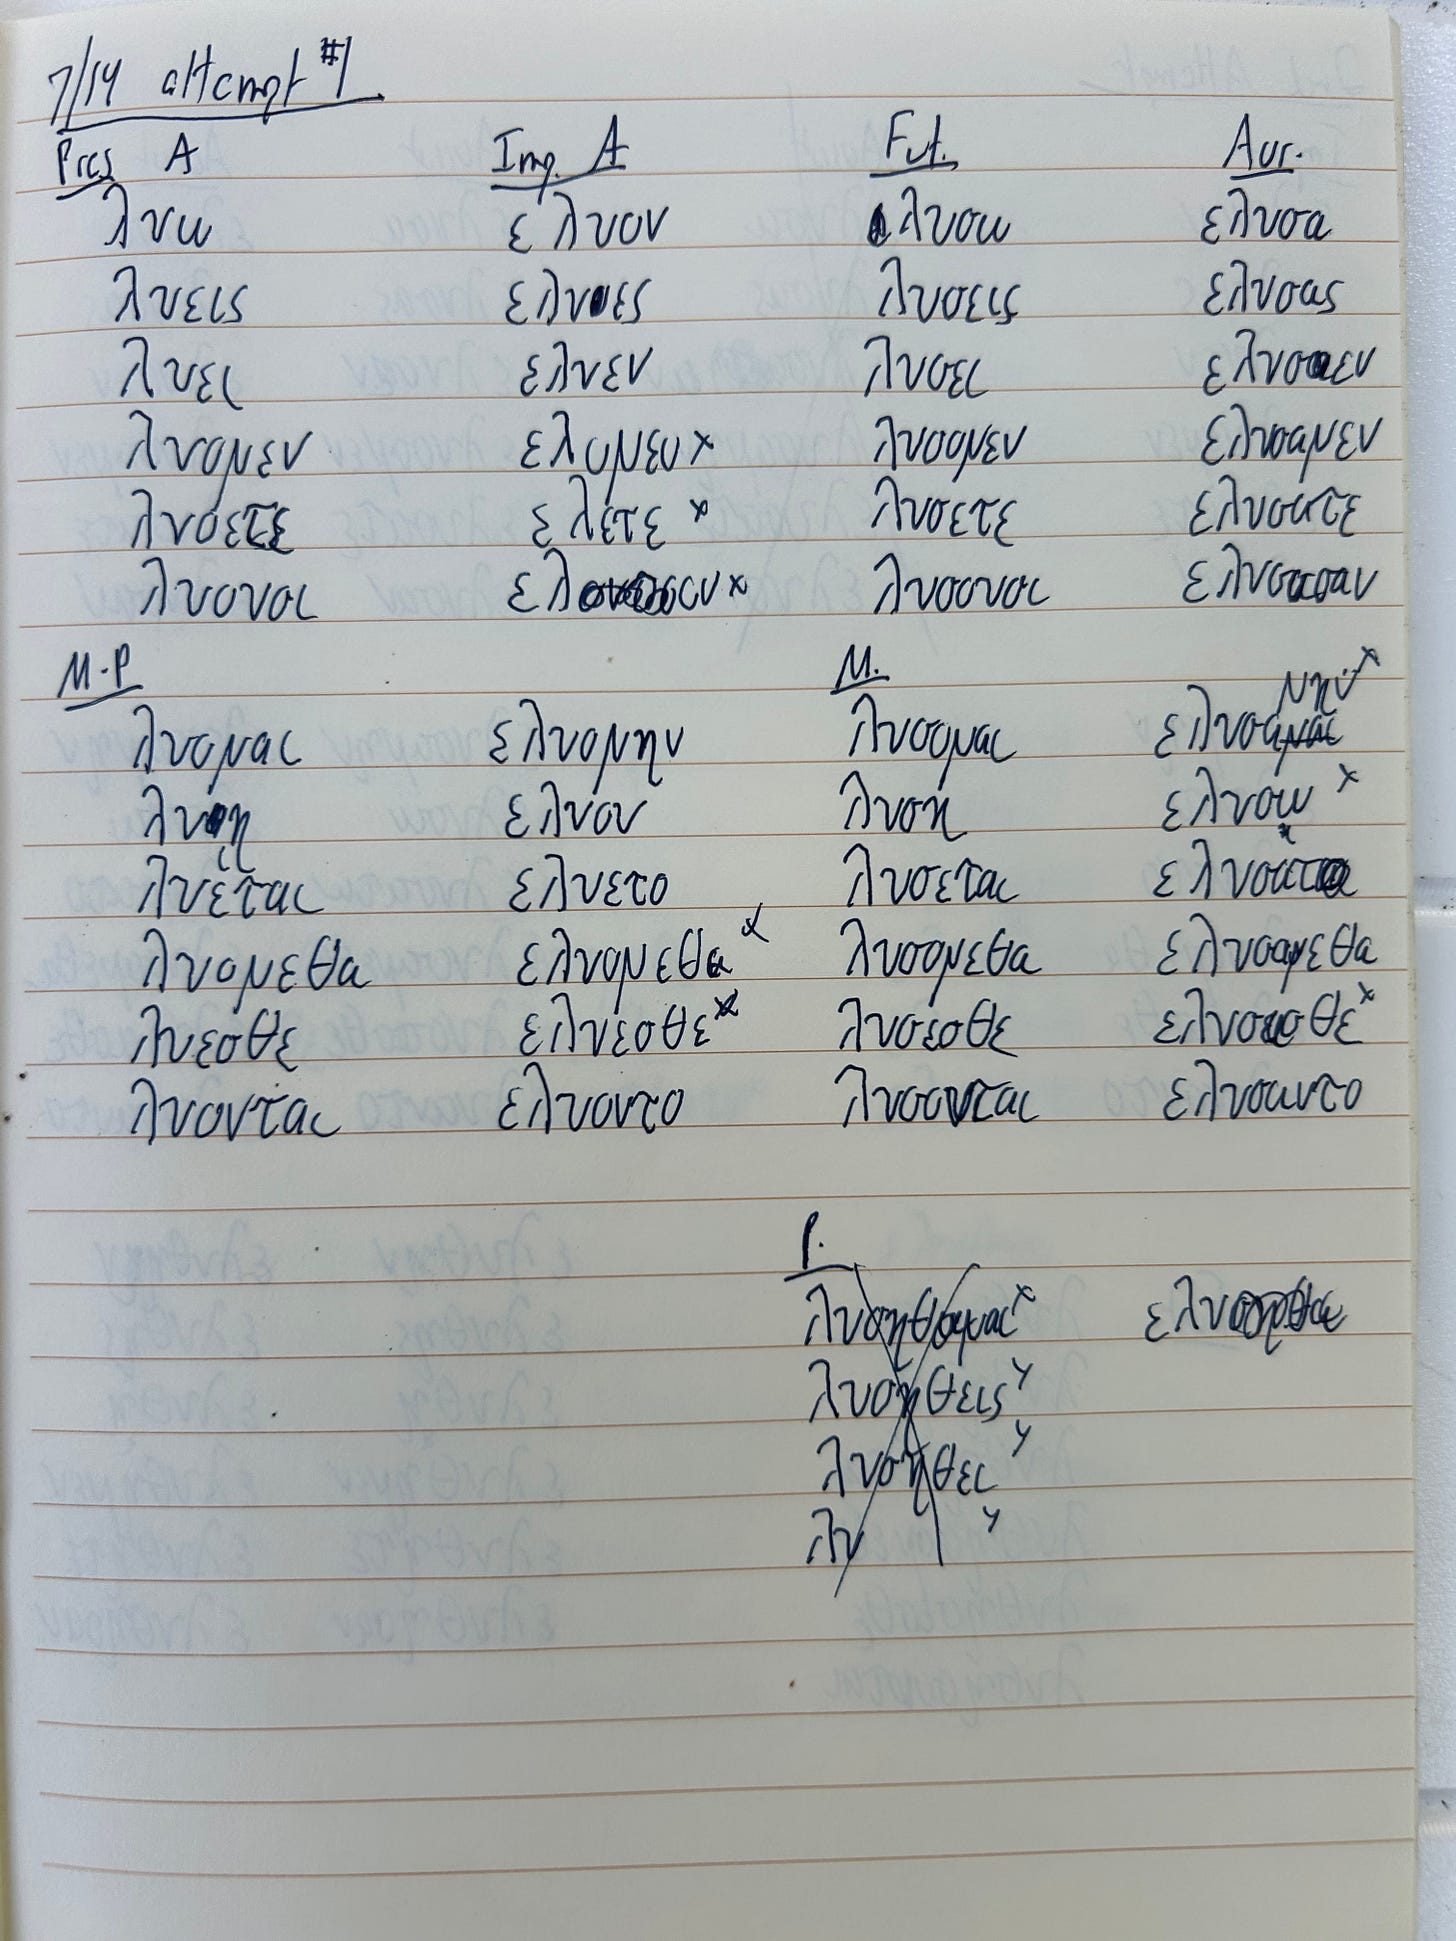 7/14 attempt #1
Pres A Imp. A Fut. Aor.
λυω ε λυον λυσω ελυσα
λυεις ελυες λυσεις ελυσας
λυει ελυεν λυσει ελυσεν
λυομεν ελομεν x λυσομεν ελυσαμεν
λυσετε ελετε x λυσετε ελυσατε
λυουσι x λυσουσι ελυσασαν
M-P M.
λυομαι ελυομην λυσομαι ελυσαμαι μην x
λυη ελυου λυσῃ ελυσω x
λυεται ελυετο λυσεται x
λυομεθα ελυομεθα x λυσομεθα ελυσαμεθα
λυεσθε ελυεσθε x λυσεσθε ελυσασθε x
λυονται ελυοντο λυσονται ελυσαντο
P.
λυσηθομαι x
λυσηθεις
λυσηθει
λυ